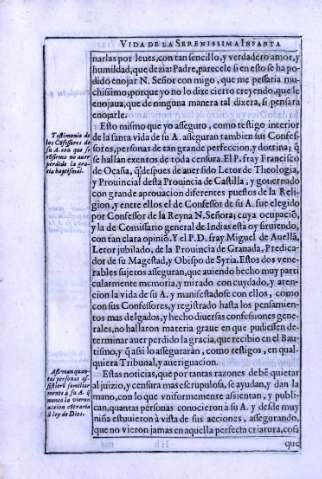 VIDA DE LA SERENISSIMA INFANTA
narlas por leues, con tan sencillo, y verdadero amor, y
humildad, que dezia: Padre, parecele si en esto se ha po-
dido enojar N. Señor con migo, que me pessaria mu-
chissimo, porque yo no lo dixe cierto creyendo, que le
enojaua, que de ninguna manera tal dixera, si pensara
enojarle.
Esto mismo que yo asseguro, como testigo interior
de la santa vida de su A. asseguran tambien sus Confes-
sores, personas de tan grande perfeccion, y dottrina; q̃
se hallan exentos de toda censura. El P. fray Francisco
de Ocaña, q̃ despues de auer sido Letor de Theologia,
y Prouincial desta Prouincia de Castilla, y gouernado
con grande aprouacion diferentes puestos de la Reli-
gion, y entre ellos el de Confessor de su A. fue elegido
por Confessor de la Reyna N. Señora; cuya ocupaciõ,
y la de Comissario general de Indias esta oy siruiendo,
con tan clara opiniõ. Y el P. D. fray Miguel de Auellã,
Letor jubilado, de la Prouincia de Granada, Predica-
dor de su Magestad, y Obispo de Syria. Estos dos vene-
rables sujetos asseguran, que auiendo hecho muy parti-
cularmente memoria, y mirado con cuydado, y aten-
cion la vida de su A. y manifestadose con ellos, como
con sus Confessores, y registrado hasta los pensamien-
tos mas delgados, y hecho diuersas confessiones gene-
rales, no hallaron materia graue en que pudiessen de-
terminar auer perdido la gracia, que recibio en el Bau-
tismo, y q̃ assi lo asseguraràn, como testigos, en qual-
quiera Tribunal, y aueriguacion.
Estas noticias, que por tantas razones debẽ quietar
al juizio, y censura mas escrupulosa, se ayudan, y dan la
mano, con lo que vniformemente assientan, y publi-
can, quantas personas conocieron à su A. y desde muy
niña estuuieron à vista de sus acciones, assegurando,
que no vieron jamas en aquella perfecta criatura, cosa
que
Testimonio de
los Cõfessores de
su A. con que se
perdido la gra-
cia baptismal.
Afirman quan-
tas personas as-
sistieron
mente à su A.
accion contraria
à ley de Dios.